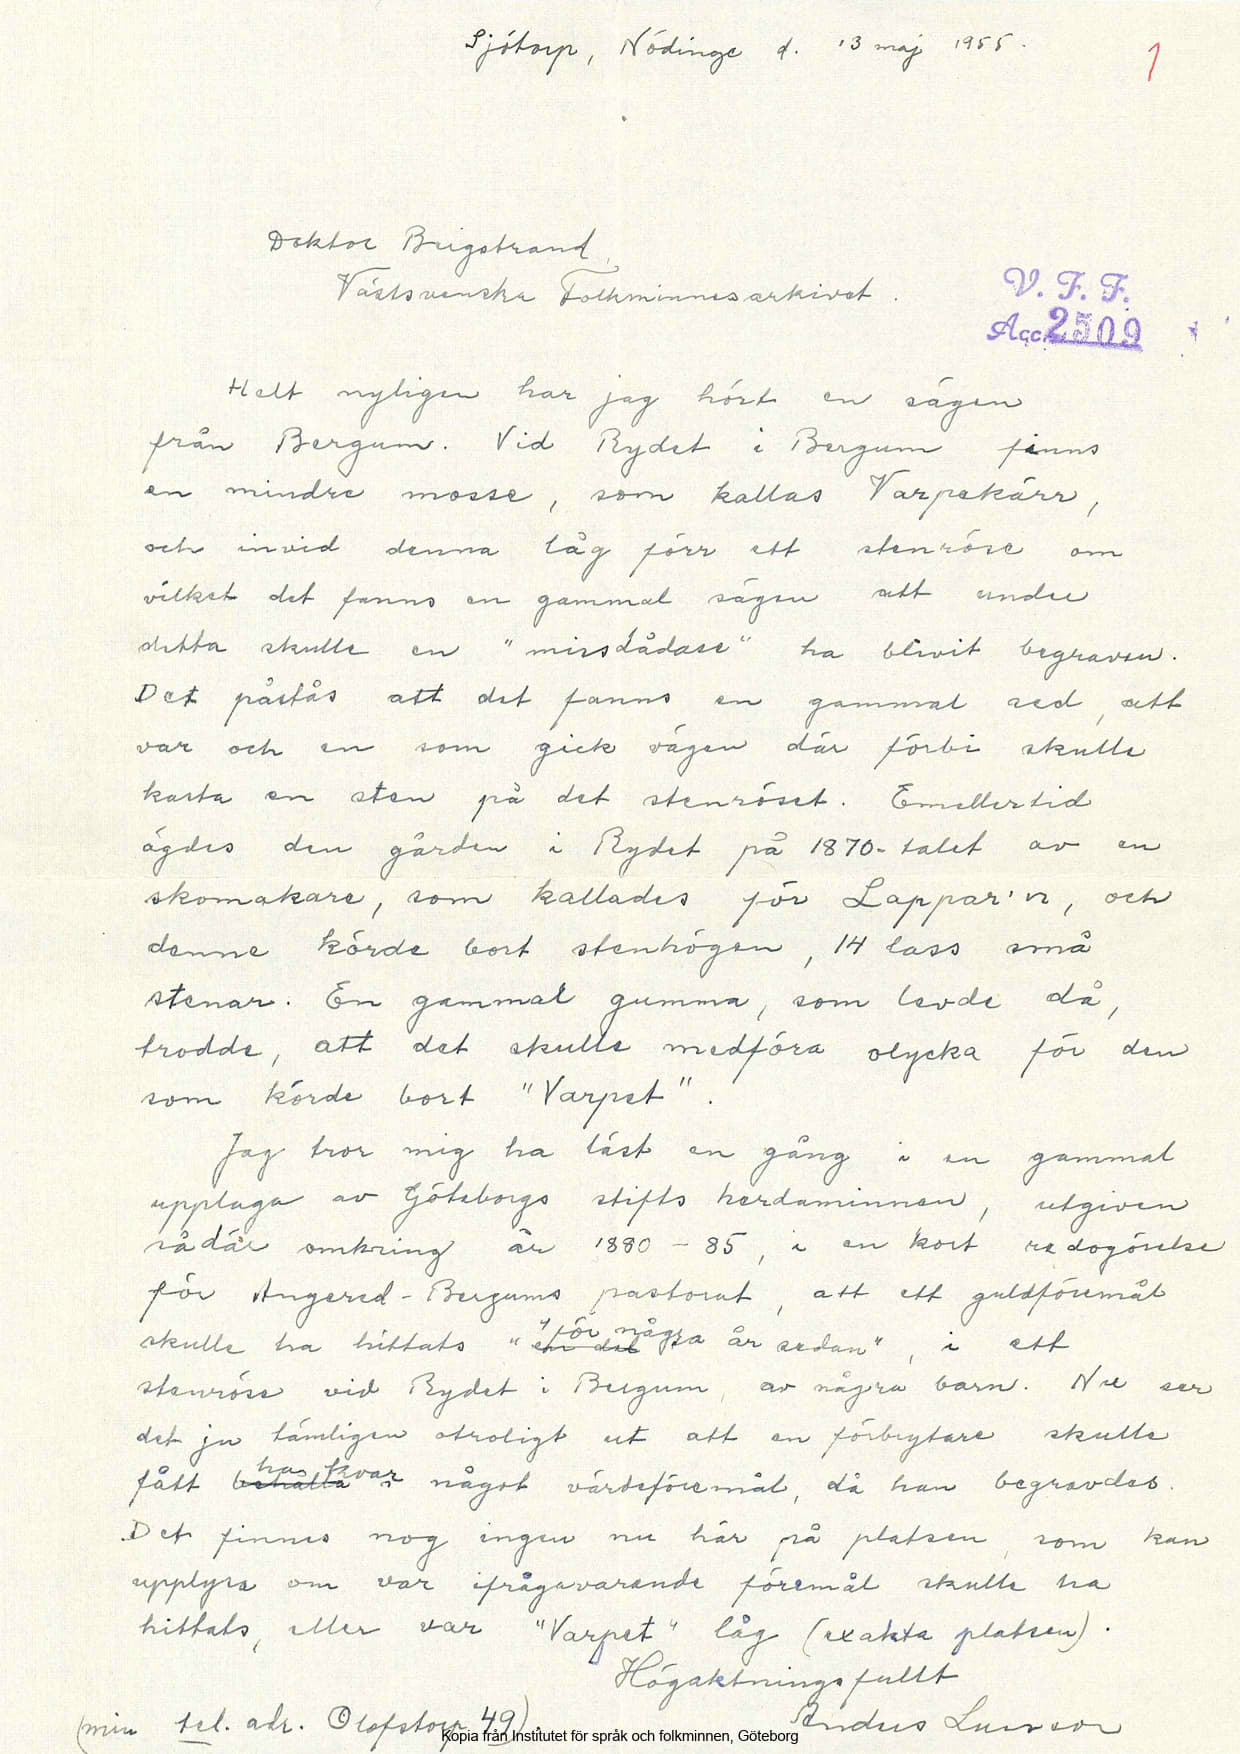 Sjötorp, Nödinge d. 13 maj 1955.
1
Doktor Brigstrand,
Västsvenska Folkminnesarkivet.
V. F. F.
Acc. 2509
Helt nyligen har jag hört en sägen
från Bergum. Vid Rydet i Bergum finns
en mindre mosse, som kallas Varpekärr,
och invid denna låg förr ett stenröse om
vilket det fanns en gammal sägen att under
detta skulle en "missdådare" ha blivit begraven.
Det påstås att det fanns en gammal sed, att
var och en som gick vägen där förbi skulle
kasta en sten på det stenröset. Emellertid
ägdes den gården i Rydet på 1870-talet av en
skomakare, som kallades för Lappar'n, och
denne körde bort stenhögen, 14 lass små
stenar. En gammal gumma, som levde då,
trodde, att det skulle medföra olycka för den
som körde bort "Varpet".
Jag tror mig ha läst en gång i en gammal
upplaga av Göteborgs stifts herdaminnen, utgiven
sådär omkring år 1880-85, i en kort redogörelse
för Angered-Bergums pastorat, att ett guldföremål
skulle ha hittats "en del "för några år sedan", i ett
stenröse vid Rydet i Bergum, av några barn. Nu ser
det ju tämligen otroligt ut att en förbrytare skulle
fått behålla ha kvar något värdeföremål, då han begravdes.
Det finnes nog ingen nu här på platsen, som kan
upplysa om var ifrågavarande föremål skulle ha
hittats, eller var "Varpet" låg (exakta platsen).
Högaktningsfullt
Anders Larsson
(min tel. adr. Olofstorp 49).
Kopia från Institutet för språk och folkminnen, Göteborg